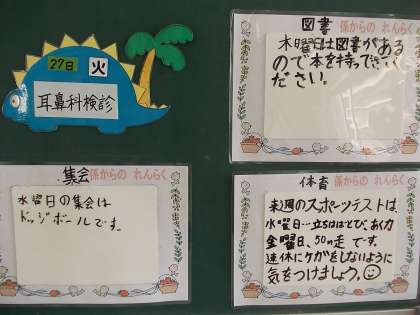 27日 火
耳鼻科検診
図書 係からの れんらく
木曜日は図書がある
ので本を持ってきてく
ださい。
集会 係からの れんらく
水曜日の集会は
ドッジボールです。
体育 係からの れんらく
来週のスポーツテストは、
水曜日…立ちはばとび、あく力
金曜日、50m走 です。
連休にケガをしないように
気をつけましょう。